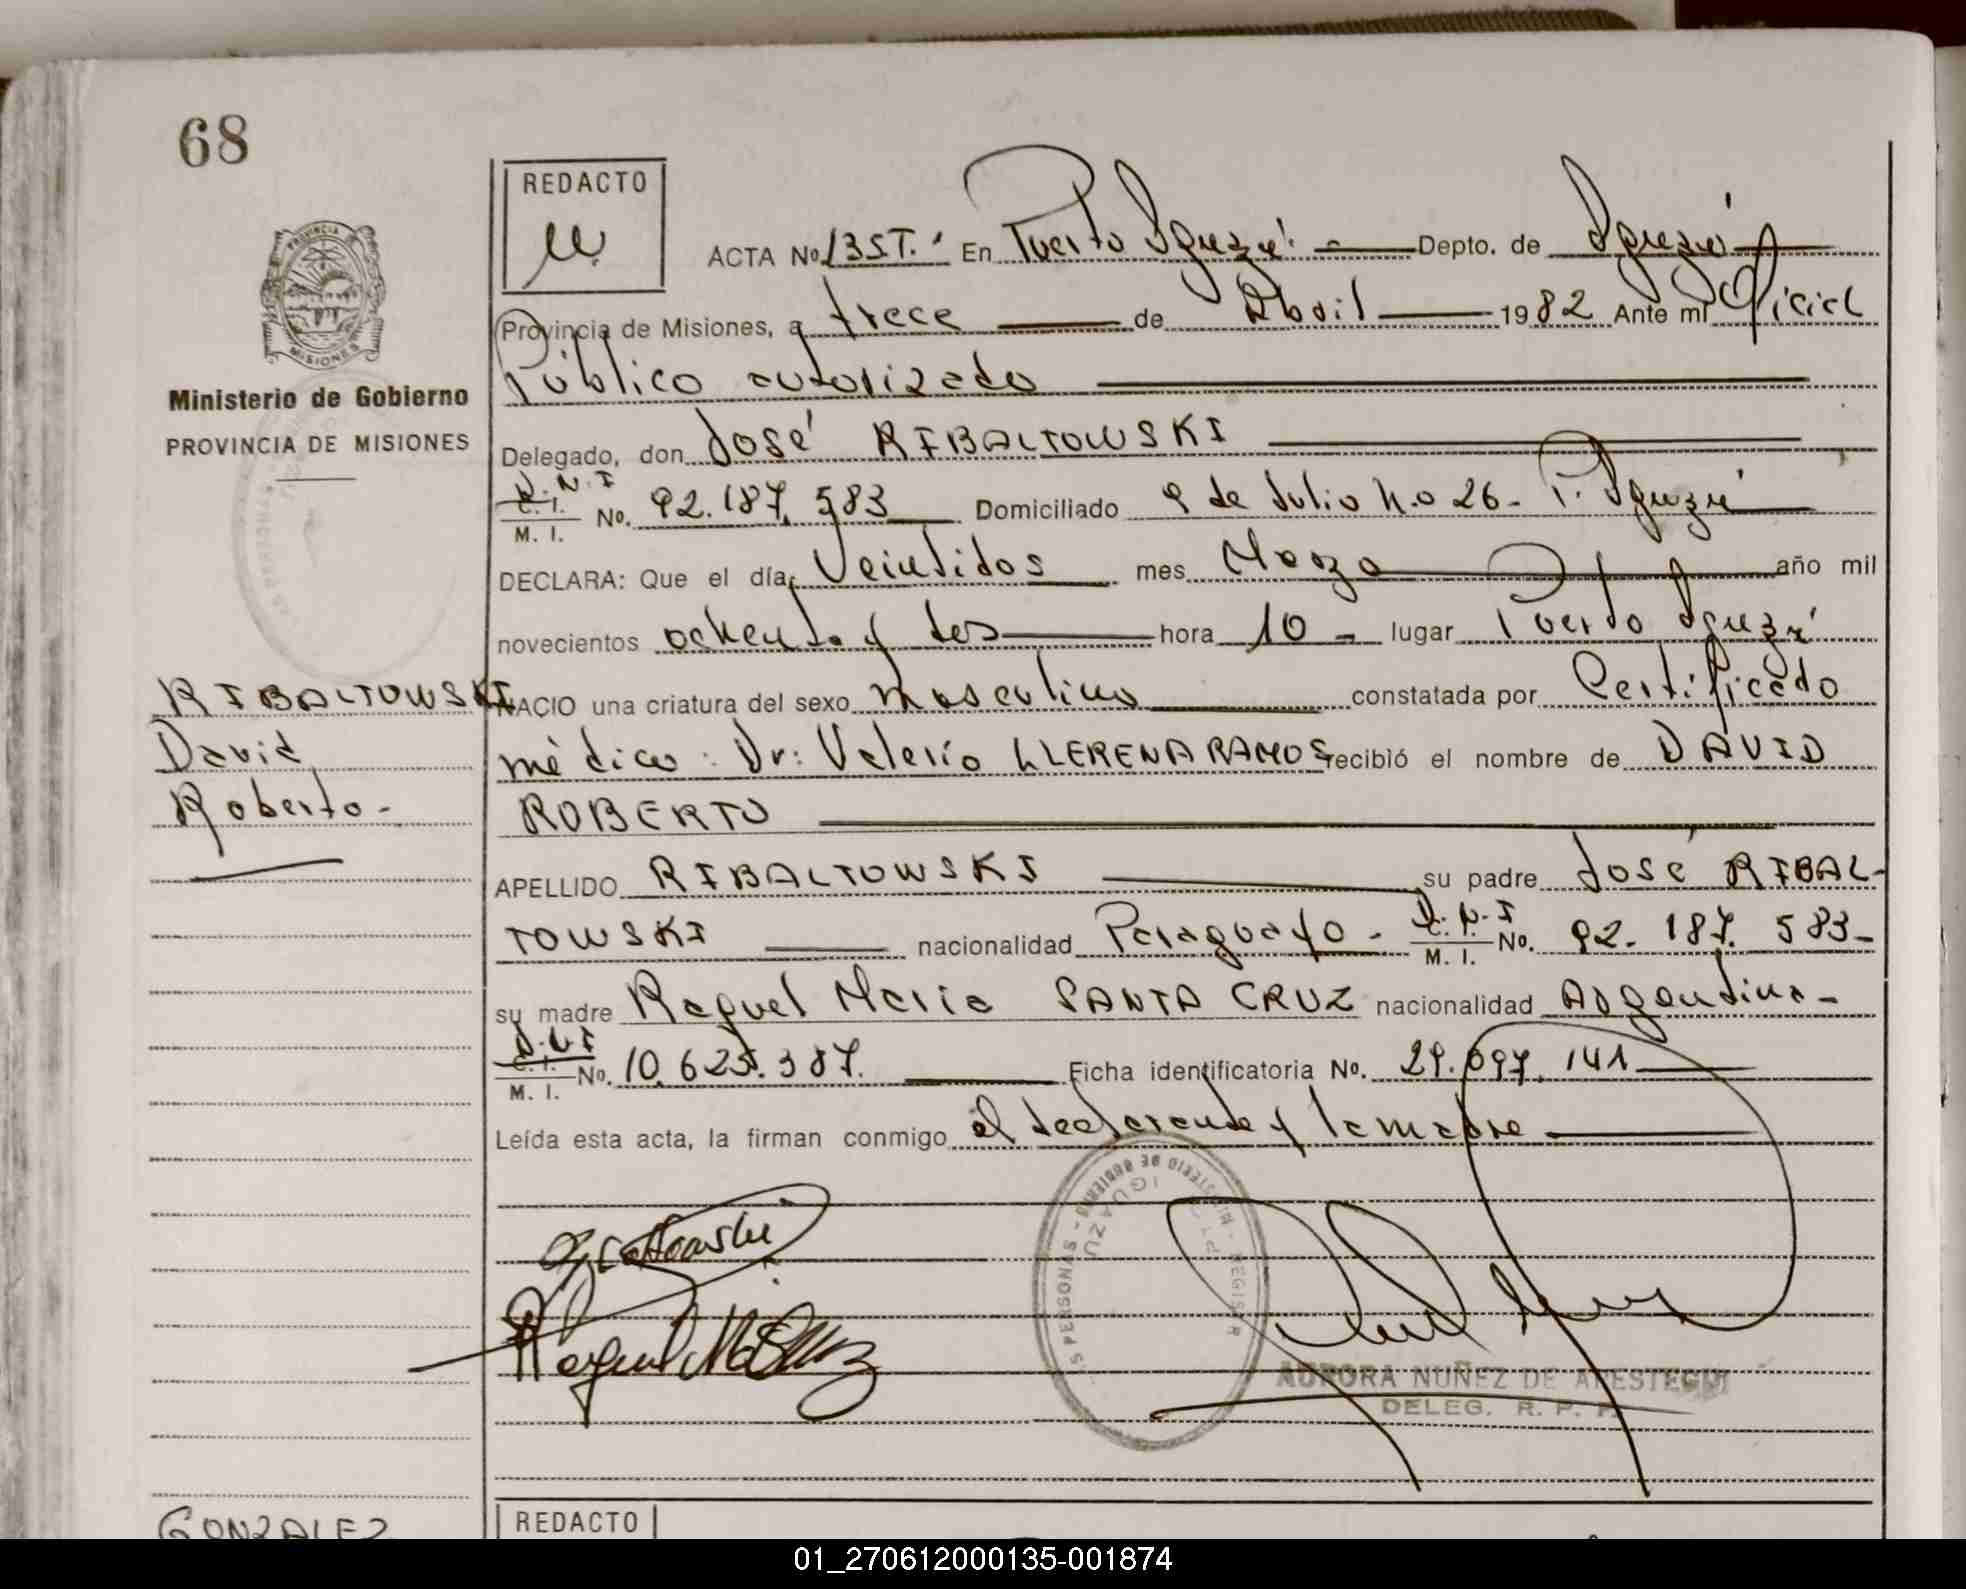 68
REDACTO
ACTA No 135T. En Puerto Iguazú. Depto. de Iguazú
Provincia de Misiones, a trece de Abril 1982 Ante mi Oficial
Público autorizado
PROVINCIA DE MISIONES
Ministerio de Gobierno
PROVINCIA DE MISIONES
Delegado, don José RIBALTOWSKI
D.N.I C.I. M. I. No. 92.187.583 Domiciliado 9 de Julio N.o 26- P. Iguazú
DECLARA: Que el día Veintidos mes Marzo año mil
novecientos ochenta y dos hora 10 - lugar Puerto Iguazú
RIBALTOWSKI
David
Roberto-
NACIO una criatura del sexo masculino constatada por Certificado
médico: Dr: Valerio LLERENA RAMOS recibió el nombre de DAVID
ROBERTO
APELLIDO RIBALTOWSKI su padre José RIBAL-
TOWSKI nacionalidad Paraguayo- D.N.I C.I. M. I. No. 92.187.583-
su madre Raquel Maria SANTA CRUZ nacionalidad Argentina-
D.N.I C.I. M. I. No. 10.625.387. Ficha identificatoria No. 29.097.141
Leída esta acta, la firman conmigo el declarante y la madre
MINISTERIO DE GOBIERNO - PERSONAS
IGUAZU
AURORA NUÑEZ DE APESTEGUI
DELEG. R. P. P.
GONZALEZ
REDACTO
01_270612000135-001874